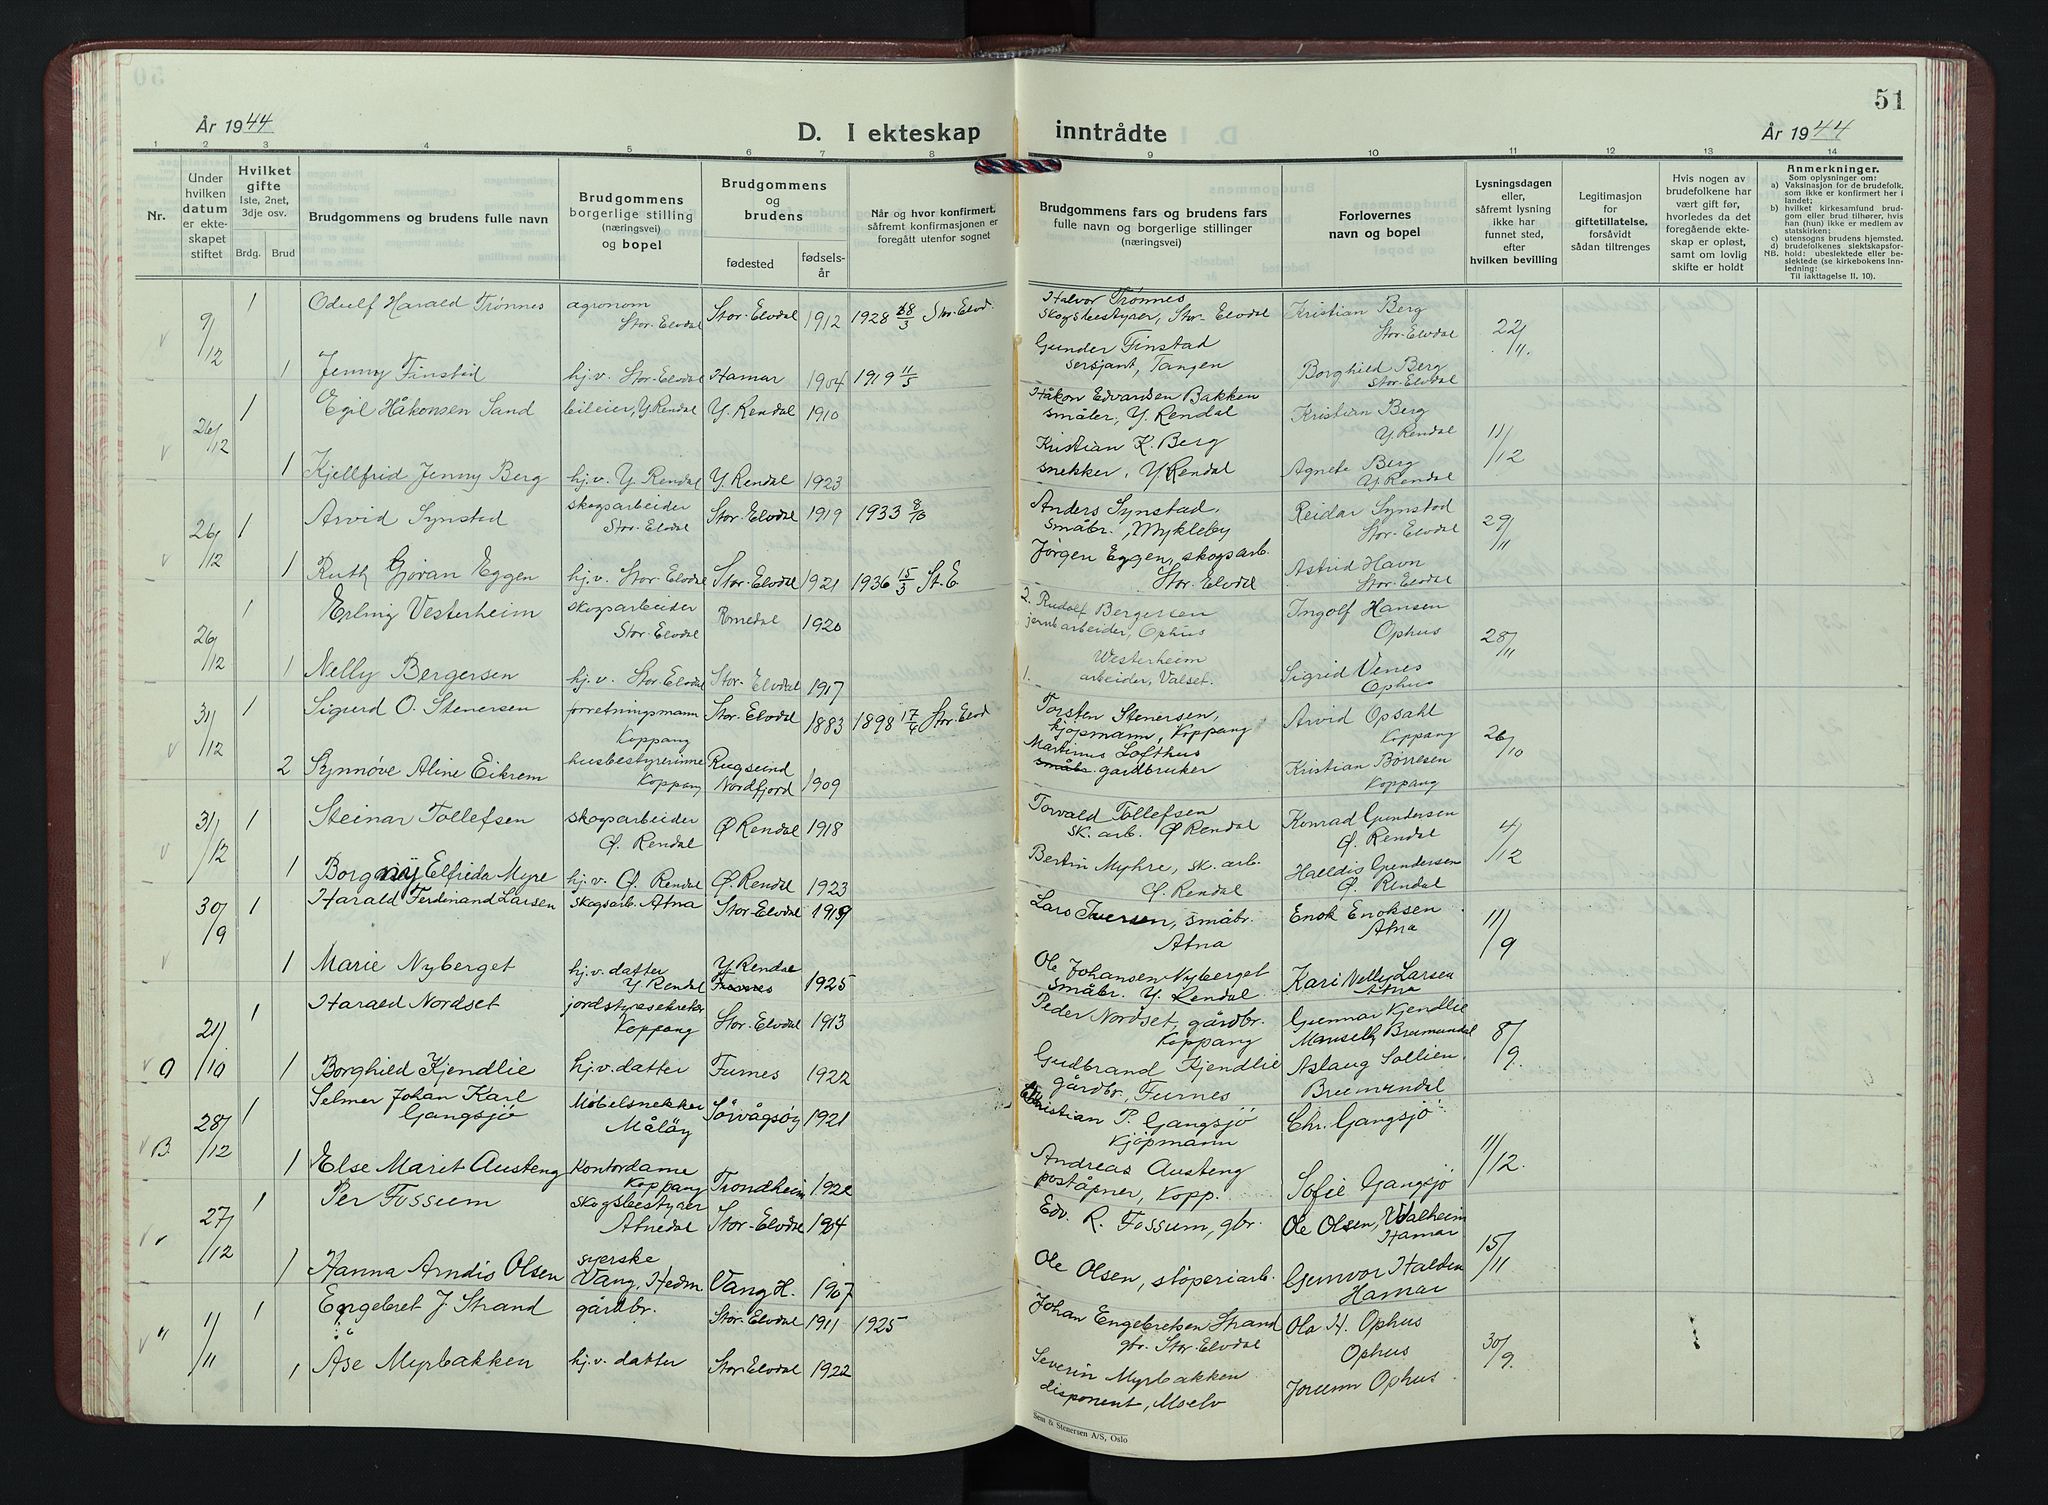 År 1944
D. I ekteskap inntrådte
51
År 1944
1 2 3 3 4 5 6 7 8 9 10 11 12 13 14
Nr.
Under hvilken datum er ekteskapet stiftet
Hvilket gifte
1ste, 2net, 3dje osv.
Brdg. Brud
Brudgommens og brudens fulle navn
Brudgommens borgerlige stilling (næringsvei) og bopel
Brudgommens og brudens
fødested
fødselsår
Når og hvor konfirmert, såfremt konfirmasjonen er foregått utenfor sognet
Brudgommens fars og brudens fars fulle navn og borgerlige stillinger (næringsvei)
Forlovernes navn og bopel
Lysningsdagen eller, såfremt lysning ikke har funnet sted, efter hvilken bevilling
Legitimasjon for giftetillatelse, forsåvidt sådan tiltrenges
Hvis nogen av brudefolkene har vært gift før, hvorledes da det foregående ekteskap er opløst, samt om lovlig skifte er holdt
Anmerkninger.
Som oplysninger om:
a) Vaksinasjon for de brudefolk, som ikke er konfirmert her i landet;
b) hvilket kirkesamfund brudgom eller brud tilhører, hvis han (hun) ikke er medlem av statskirken;
c) utensogns brudens hjemsted.
d) brudefolkenes slektskapsforhold: ubeslektede eller beslektede (se kirkebokens Innledning:
NB. Til iakttagelse II, 10).
9/12 1 Odulf Harald Trønnes agronom Stor-Elvdal Stor-Elvdal 1912 1928 18/3 Stor-Elvd. Halvor Trønnes skogsbestyrer, Stor-Elvdal Kristian Berg Stor-Elvdal 22/11.
1 Jenny Finstad hj.v. Stor-Elvdal Hamar 1904 1919 11/5 Gunder Finstad sersjant, Tangen Borghild Berg Stor-Elvdal
26/12 1 Egil Håkonsen Sand bileier, Y. Rendal Y. Rendal 1910 Håkon Edvardsen Bakken småbr, Y. Rendal Kristian Berg Y. Rendal 11/12
1 Kjellfrid Jenny Berg hj.v. Y. Rendal Y. Rendal 1923 Kristian K. Berg snekker, Y. Rendal Agnete Berg Y. Rendal
26/12 1 Arvid Synstad skogsarbeider Stor-Elvdal Stor-Elvdal 1919 1933 8/10 Anders Synstad, småbr., Mykleby Reidar Synstad Stor-Elvdal 29/11
1 Ruth Gjøran Eggen hj.v. Stor-Elvdal Stor-Elvdal 1921 1936 15/3 St. E Jørgen Eggen, skogsarb. Stor-Elvdal Astrid Havn Stor-Elvdal
26/12 1 Erling Vesterheim skogsarbeider Stor-Elvdal Romedal 1920 2. Rudolf Bergersen jernb arbeider, Ophus Ingolf Hansen Ophus 28/11
1 Nelly Bergersen hj.v. Stor-Elvdal Stor-Elvdal 1917 1. Westerheim arbeider, Valset. Sigrid Venes Ophus
31/12 1 Sigurd O. Stenersen forretningsmann Koppang Stor-Elvdal 1883 1898 17/4 Stor-Elvd Torsten Stenersen, kjøpmann, Koppang Arvid Opsahl Koppang 26/10
2 Synnøve Aline Eikrem husbestyrerinne Koppang Rugsund Nordfjord 1909 Martinus Lofthus småbr. gardbruker Kristian Børresen Koppang
31/12 1 Steinar Tollefsen skogsarbeider Ø. Rendal Ø Rendal 1918 Torvald Tollefsen sk. arb. Ø Rendal Konrad Gundersen Ø. Rendal 4/12
1 Borgnøy Elfrida Myre hj.v. Ø. Rendal Ø. Rendal 1923 Bertin Myhre, sk. arb. Ø. Rendal Halldis Gundersen Ø. Rendal
30/9 1 Harald Ferdinand Larsen skogsarb. Atna Stor-Elvdal 1919 Lars Iversen, småbr. Atna Enok Enoksen Atna 11/9
1 Marie Nyberget hj.v. datter Y. Rendal Y Rendal 1925 Ole Johansen Nyberget småbr. Y. Rendal Kari Nelly Larsen Atna
21/10 1 Harald Nordset jordstyresekretær Koppang Stor-Elvdal 1913 Peder Nordset, gårdbr. Koppang Gunnar Kjendlie Brumundal 8/9.
O 1 Borghild Kjendlie hj.v. datter Furnes 1922 Gudbrand Kjendlie gårdbr, Furnes Aslaug Sollien. Brumundal
28/12 1 Selmer Johan Karl Gangsjö Møbelsnekker Måløy Sørvågsøy 1921 Kristian P. Gangsjö Kjøpmann Chr. Gangsjö 11/12.
B. 1 Else Marit Austeng Kontordame Koppang Trondheim 1922 Andreas Austeng poståpner, Kopp. Sofie Gangsjø
27/12 1 Per Fossum skogsbestyrer Atnedal Stor-Elvdal 1904 Edv. R. Fossum, gbr. Ole Olsen, Valheim Hamar 15/11
1 Hanna Arndis Olsen syerske Vang, Hedm Vang H. 1907 Ole Olsen, støperiarb. Gunvor Halden Hamar
1/11 1 Engebret J. Strand gårdbr. Stor-Elvdal 1911 1925 Johan Engebretsen Strand gbr. Stor-Elvdal Ola H. Ophus Ophus 30/9.
1 Åse Myrbakken hj.v. datter Stor-Elvdal 1922 Severin Myrbakken disponent, Moelv Jorunn Ophus
Sem & Stenersen A/S, Oslo